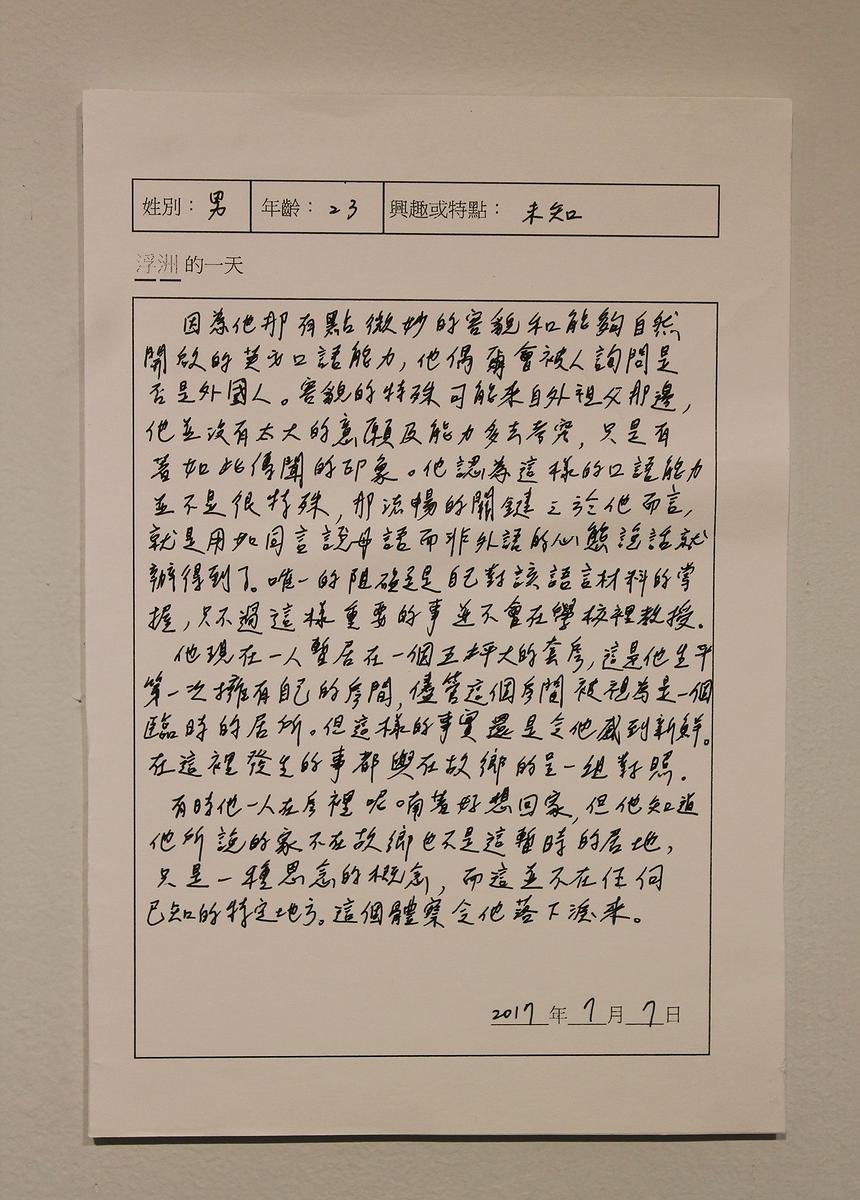 姓別：男 年齡：23 興趣或特點：未知
浮洲的一天
因為他那有點微妙的容貌和能夠自然
開啟的英文口語能力，他偶爾會被人詢問是
否是外國人。容貌的特殊可能來自外祖父那邊，
他並沒有太大的意願及能力多去考究，只是有
著如此傳聞的印象。他認為這樣的口語能力
並不是很特殊，那流暢的關鍵之於他而言，
就是用如同言說母語而非外語的心態說話就
辦得到了。唯一的阻礙是自己對該語言材料的掌
握，只不過這樣重要的事並不會在學校裡教授。
他現在一人暫居在一個五坪大的套房，這是他生平
第一次擁有自己的房間，儘管這個房間被視為是一個
臨時的居所。但這樣的事實還是令他感到新鮮。
在這裡發生的事都與在故鄉的呈一組對照。
有時他一人在房裡呢喃著好想回家，但他知道
他所說的家不在故鄉也不是這暫時的居地，
只是一種思念的概念，而這並不在任何
已知的特定地方。這個體察令他落下淚來。
2017年7月7日